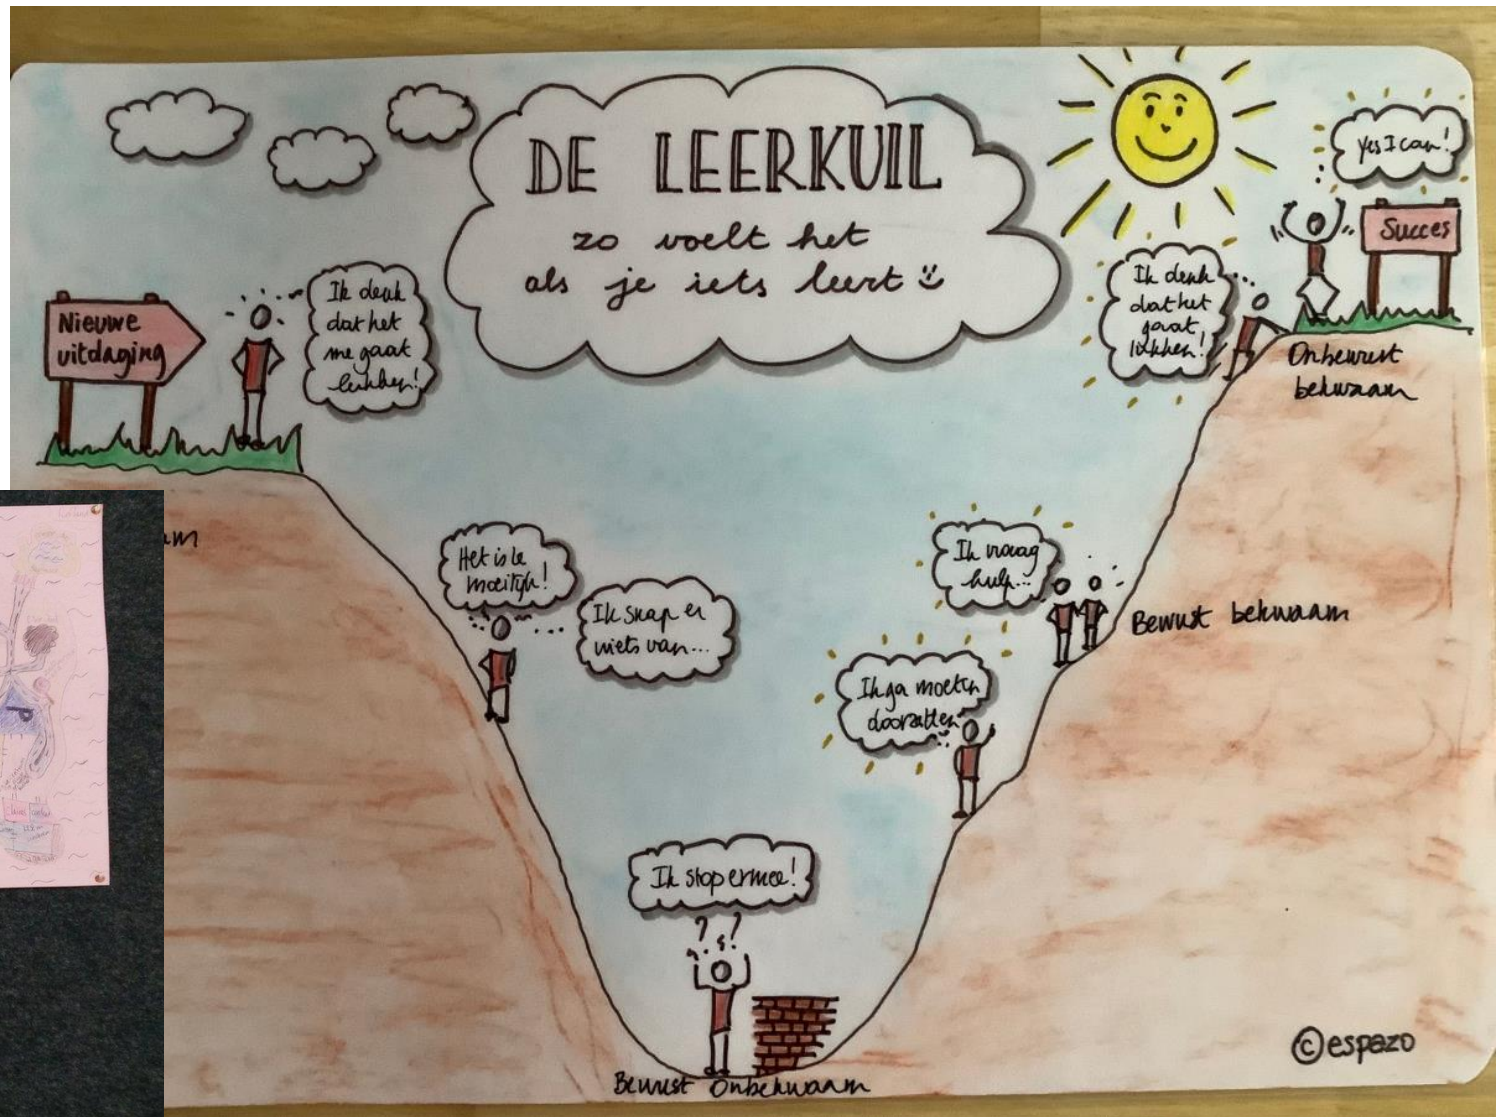 DE LEERKUIL
zo voelt het
als je iets leert
Nieuwe
uitdaging
Ik denk
dat het
me gaat
lukken!
Het is te
moeilijk!
Ik snap er
niets van...
Ik stop ermee!
Bewust Onbekwaam
Ik ga moeten
doorzetten
Ik vraag
hulp...
Bewust bekwaam
Ik denk
dat het
gaat
lukken!
Onbewust
bekwaam
yes I can!
Succes
©espazo